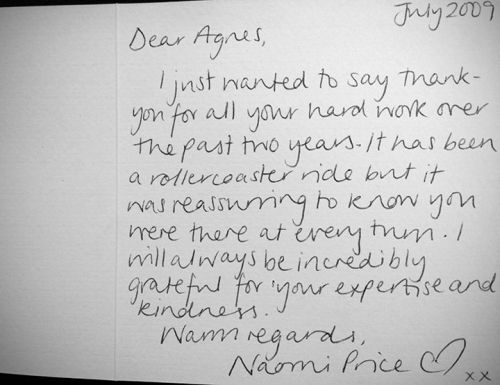 July 2009
Dear Agnes,
I just wanted to say thank-
you for all your hard work over
the past two years. It has been
a rollercoaster ride but it
was reassurring to know you
were there at every turn. I
will always be incredibly
grateful for your expertise and
kindness.
Warm regards,
Naomi Price ♡ xx